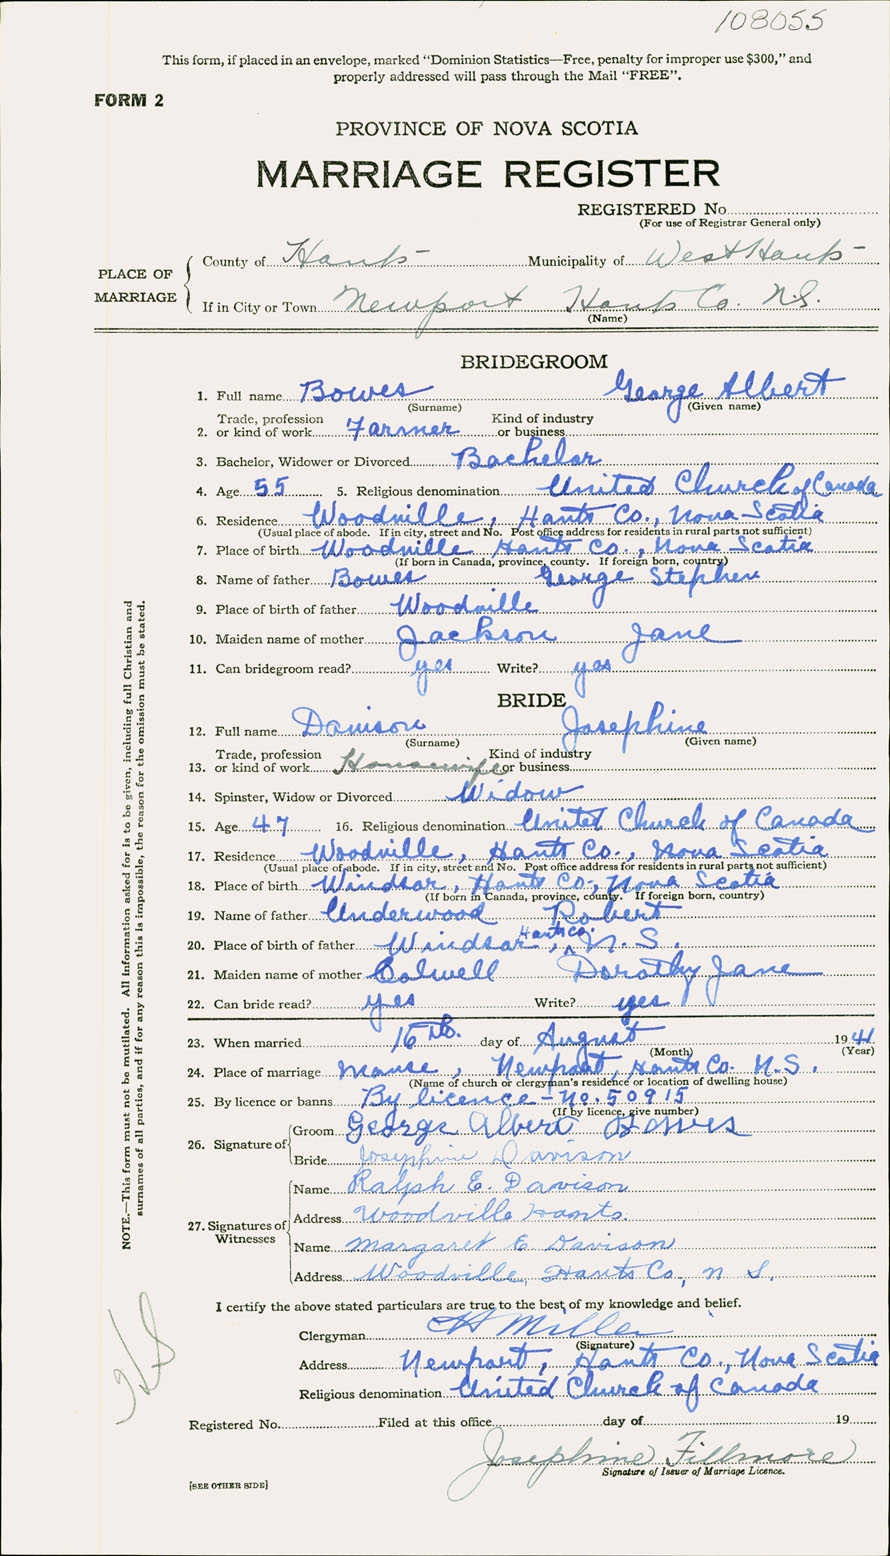 108055
This form, if placed in an envelope, marked “Dominion Statistics—Free, penalty for improper use $300,” and
properly addressed will pass through the Mail “FREE”.
FORM 2
PROVINCE OF NOVA SCOTIA
MARRIAGE REGISTER
REGISTERED No.
(For use of Registrar General only)
PLACE OF MARRIAGE
County of Hants Municipality of West Hants
If in City or Town Newport Hants Co. N.S.
(Name)
BRIDEGROOM
1. Full name Bowes George Albert
(Surname) (Given name)
Trade, profession Kind of industry
2. or kind of work Farmer or business
3. Bachelor, Widower or Divorced Bachelor
4. Age 55 5. Religious denomination United Church of Canada
6. Residence Woodville, Hants Co., Nova Scotia
(Usual place of abode. If in city, street and No. Post office address for residents in rural parts not sufficient)
7. Place of birth Woodville Hants Co., Nova Scotia
(If born in Canada, province, county. If foreign born, country)
8. Name of father Bowes George Stephen
9. Place of birth of father Woodville
10. Maiden name of mother Jackson Jane
11. Can bridegroom read? yes Write? yes
BRIDE
12. Full name Davison Josephine
(Surname) (Given name)
Trade, profession Kind of industry
13. or kind of work Housewife or business
14. Spinster, Widow or Divorced Widow
15. Age 47 16. Religious denomination United Church of Canada
17. Residence Woodville, Hants Co., Nova Scotia
(Usual place of abode. If in city, street and No. Post office address for residents in rural parts not sufficient)
18. Place of birth Windsor, Hants Co., Nova Scotia
(If born in Canada, province, county. If foreign born, country)
19. Name of father Underwood Robert
20. Place of birth of father Windsor, Hants Co. N.S.
21. Maiden name of mother Colwell Dorothy Jane
22. Can bride read? yes Write? yes
23. When married 16th. day of August 1941
(Month) (Year)
24. Place of marriage Manse, Newport, Hants Co. N.S.
(Name of church or clergyman's residence or location of dwelling house)
25. By licence or banns By licence - No. 50915
(If by licence, give number)
26. Signature of Groom George Albert Bowes
Bride Josephine Davison
27. Signatures of Witnesses
Name Ralph E. Davison
Address Woodville Hants.
Name Margaret E Davison
Address Woodville, Hants Co., N S.
I certify the above stated particulars are true to the best of my knowledge and belief.
Clergyman Miller
(Signature)
Address Newport, Hants Co., Nova Scotia
Religious denomination United Church of Canada
Registered No. Filed at this office day of 19
Josephine Fillmore
Signature of Issuer of Marriage Licence.
[SEE OTHER SIDE]
NOTE.—This form must not be mutilated. All Information asked for is to be given, including full Christian and
surnames of all parties, and if for any reason this is impossible, the reason for the omission must be stated.